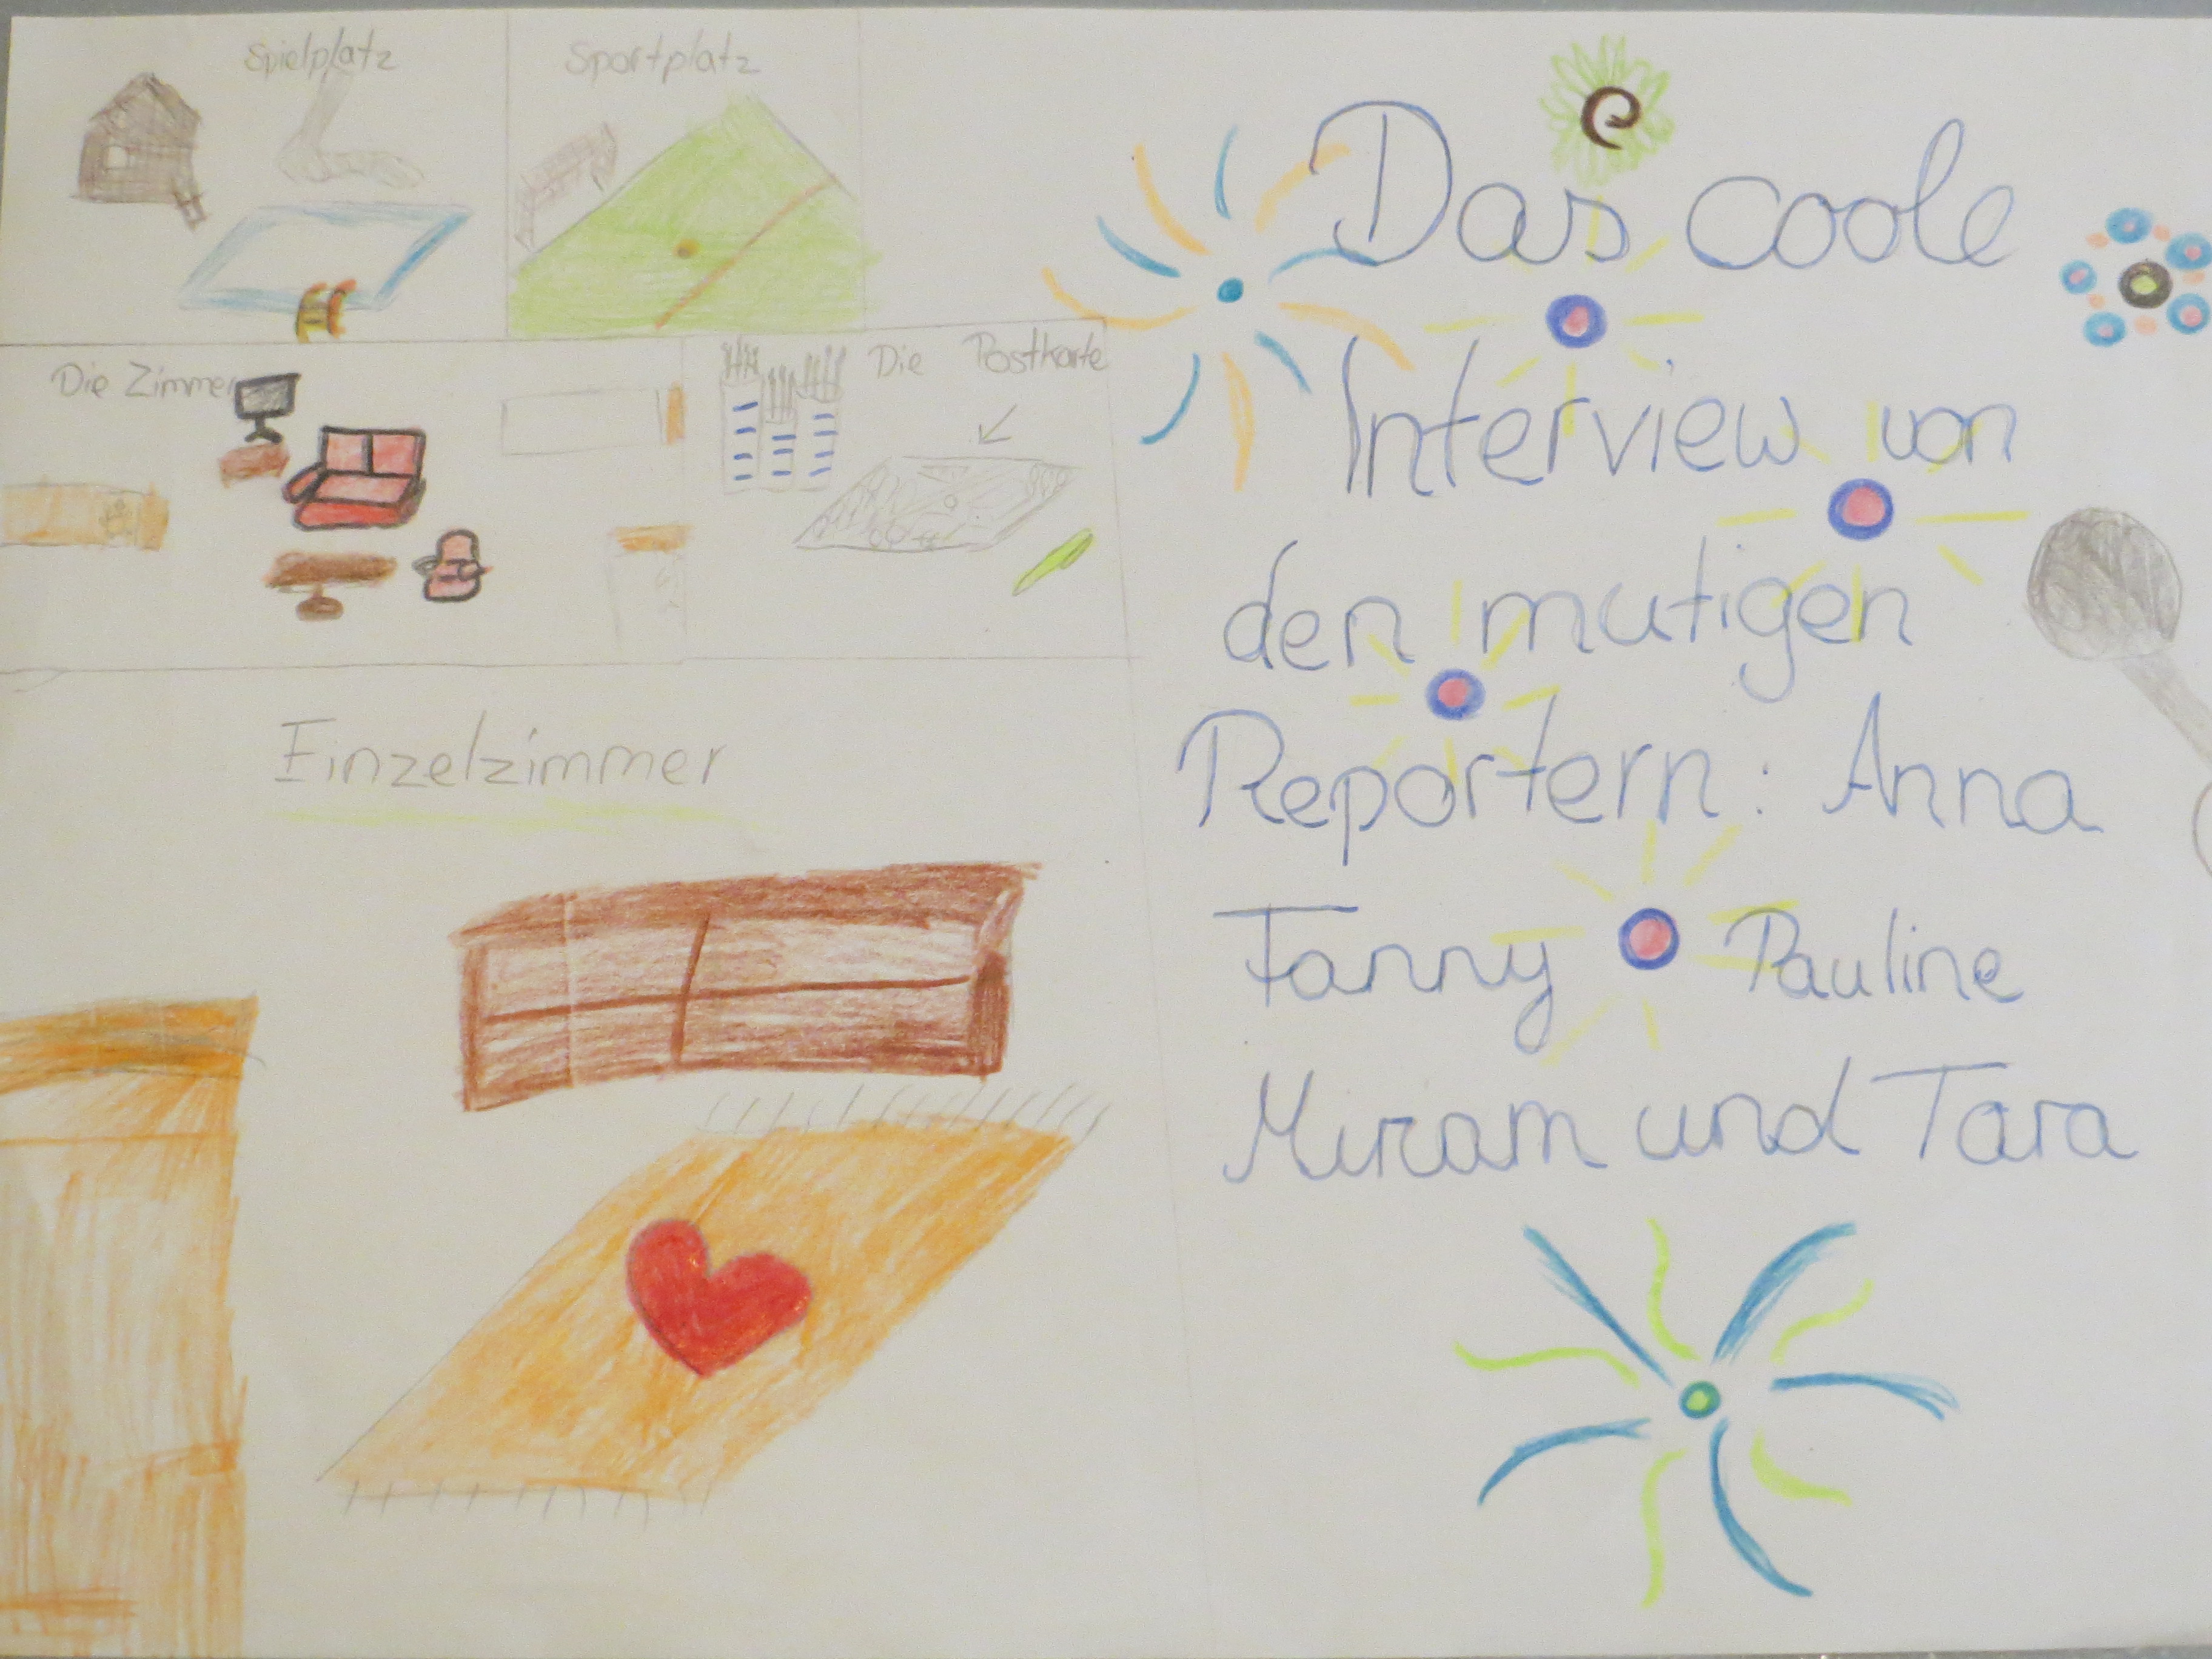 Spielplatz
Sportplatz
Die Zimmer
Die Postkarte
Einzelzimmer
Das coole
Interview von
den mutigen
Reportern: Anna
Fanny Pauline
Miriam und Tara